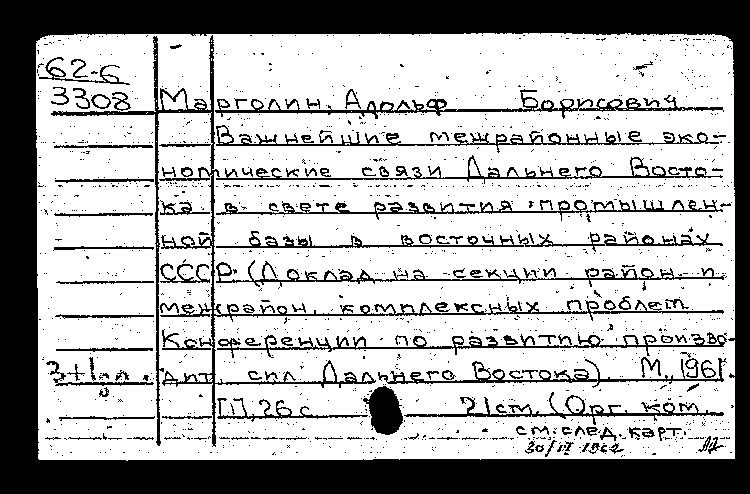 62-6
3308 Марголин, Адольф Борисович
Важнейшие межрайонные эко-
номические связи Дальнего Восто-
ка в свете развития промышлен-
ной базы в восточных районах
СССР. (Доклад на секции район. и
межрайон. комплексных проблем
Конференции по развитию произво-
дит. сил Дальнего Востока). М., 1961.
[1], 26 с. 21 см. (Орг. ком.
см. след. карт.